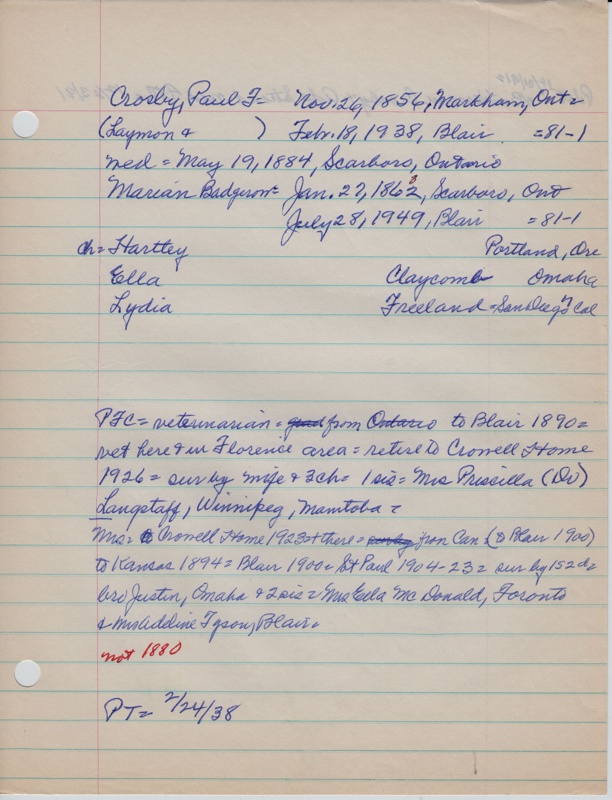 Crosby, Paul F= Nov. 26, 1856, Markham, Ont=
(Laymon & ) Febr. 18, 1938, Blair =81-1
med = May 19, 1884, Scarboro, Ontario
Marian Badgerow= Jan. 27, 1862, Scarboro, Ont
July 28, 1949, Blair =81-1
ch= Hartley Portland, Ore
Ella Claycomb Omaha
Lydia Freeland = San Diego, Cal
PFC = veterinarian = grad from Ontario to Blair 1890=
vet here & in Florence area = retire to Crowell Home
1926 = sur by wife & 3 ch = 1 sis = Mrs Priscilla (Dr)
Langstaff, Winnipeg, Manitoba =
Mrs = to Crowell Home 1923 & there = sur by from Can (to Blair 1900)
to Kansas 1894 = Blair 1900 = St Paul 1904-23 = sur by 1s 2d =
bro Justin, Omaha & 2 sis = Mrs Ella McDonald, Toronto
& Mrs Addine Tyson, Blair.
not 1880
PT= 2/24/38